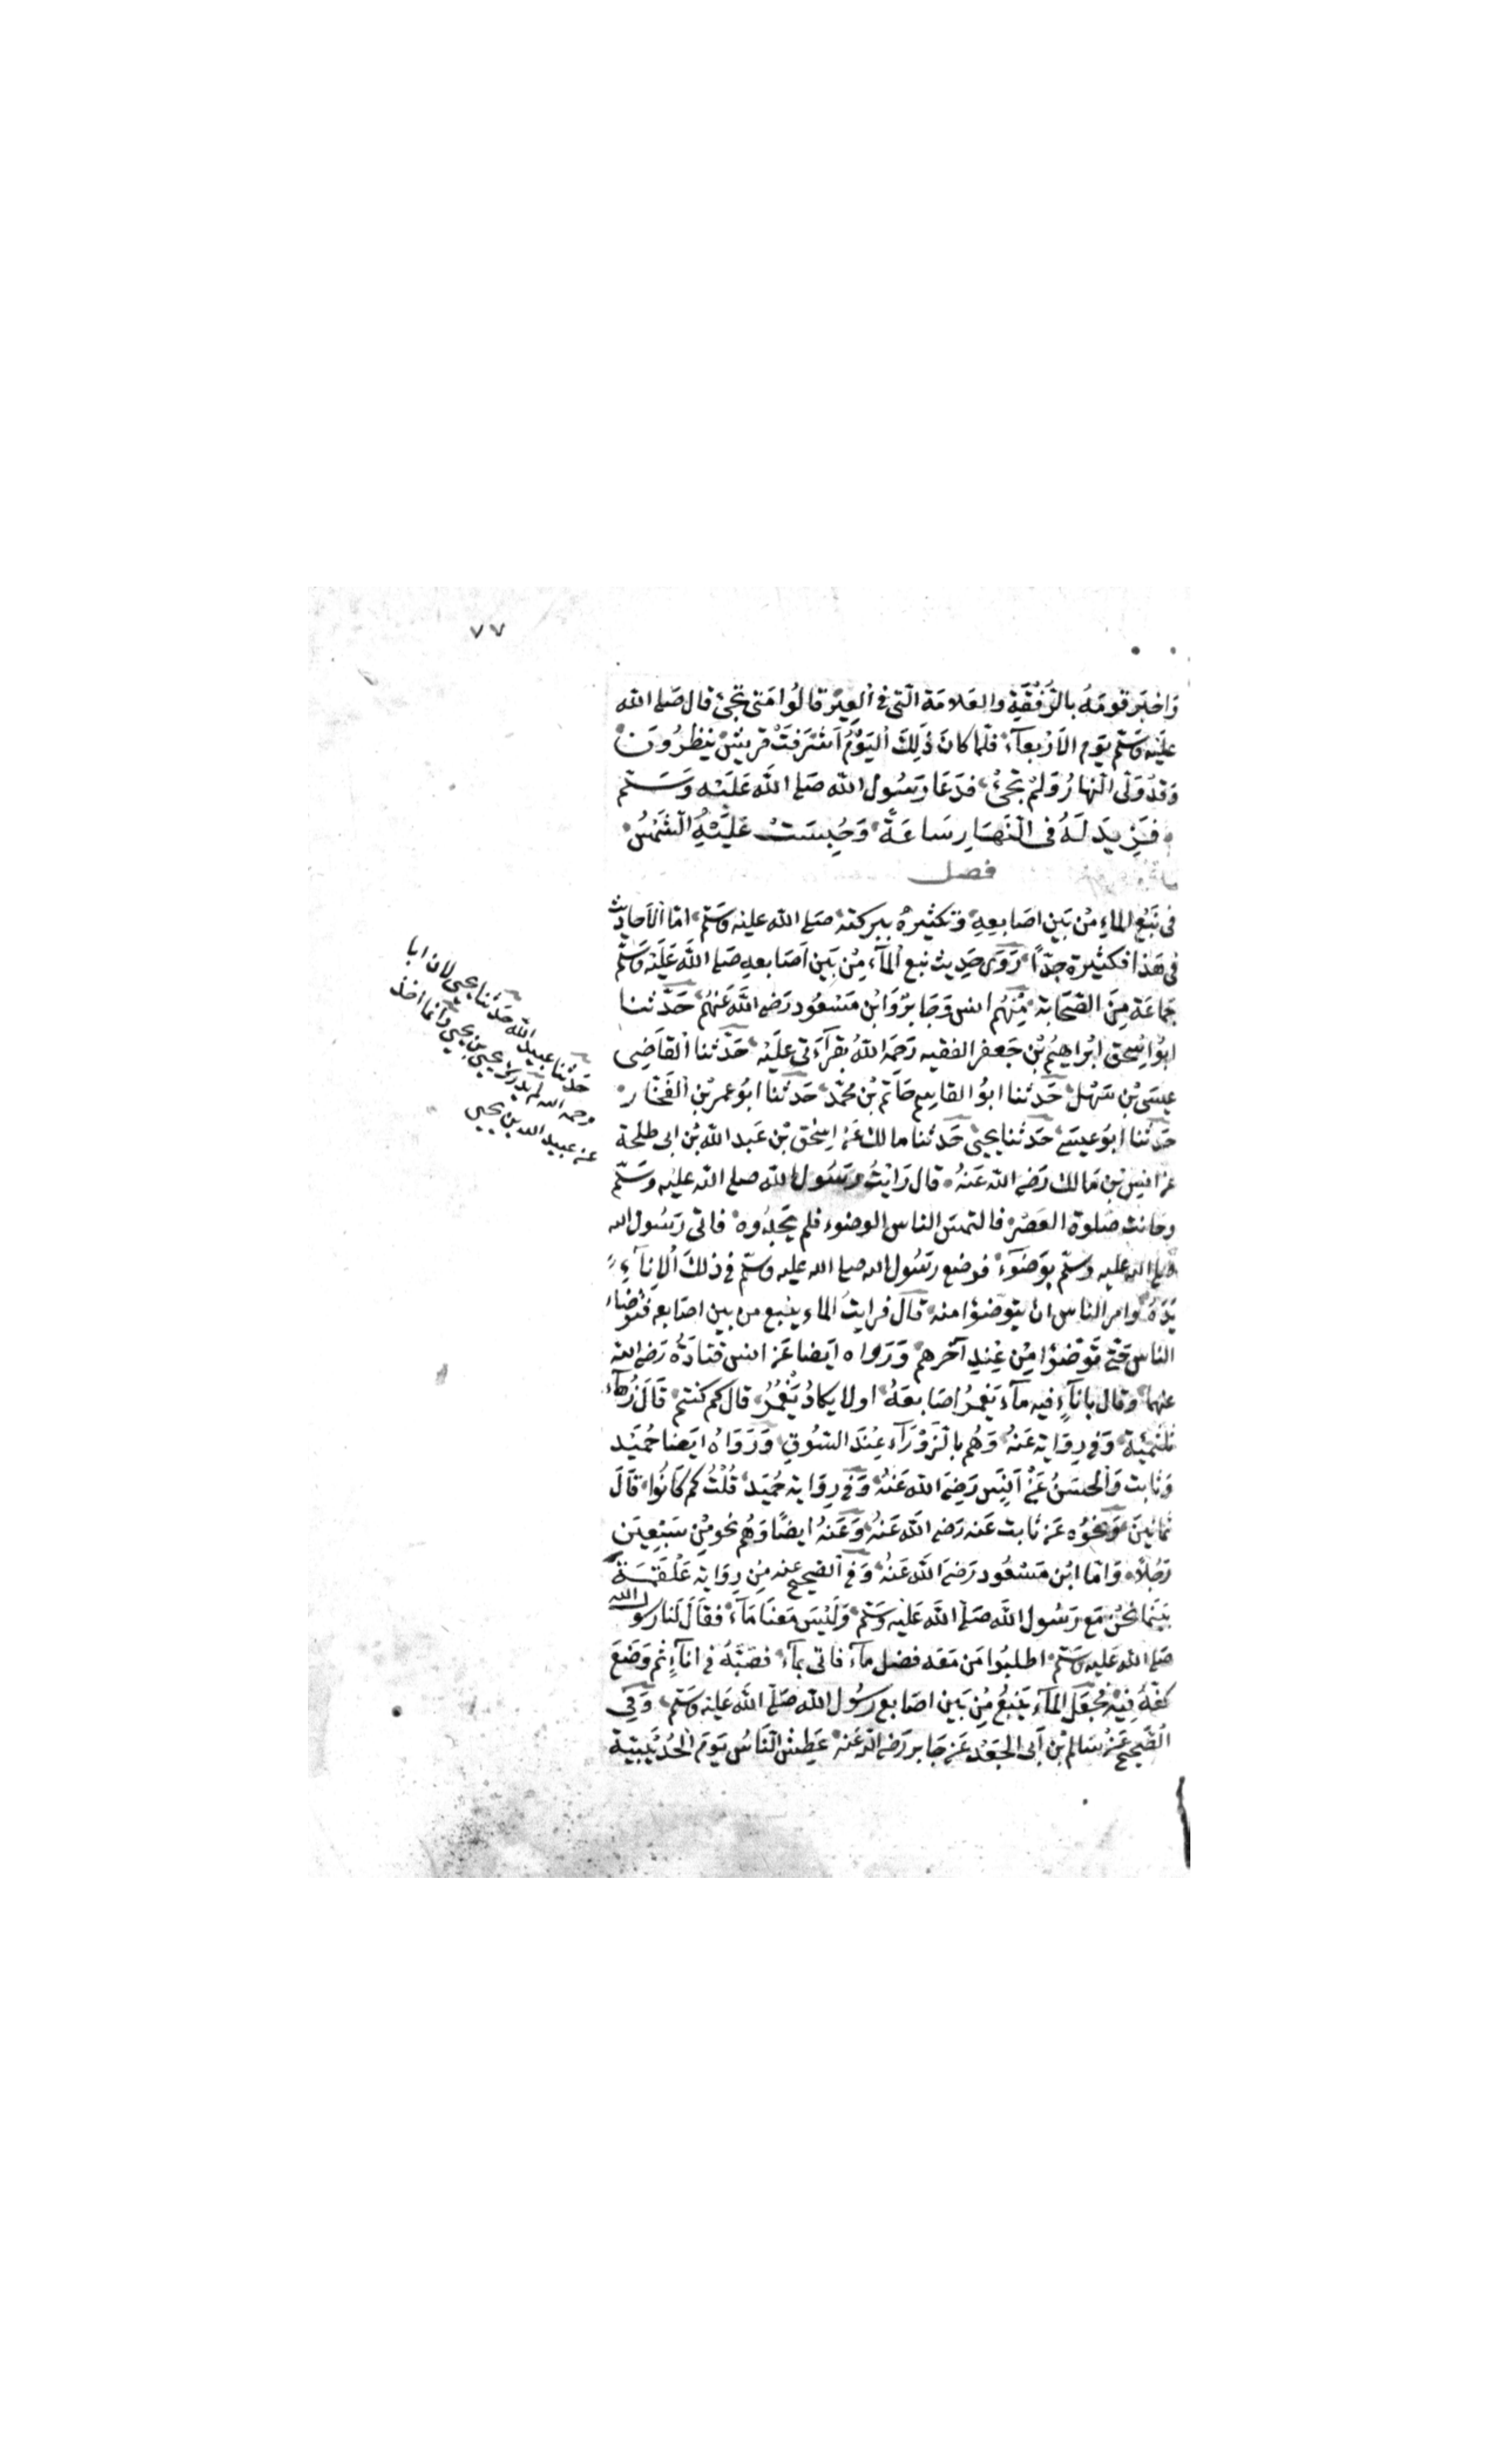 ٧٧
وَاخبَر قومَهُ بالرُّفْقَةِ والعَلامَة الّتى فى العِيْر قالُوا مَتى تجئ قال صَلى الله
عليه وَسَلّم يَوم الاَرْبعآء فلمّا كانَ ذٰلِكَ اليَوْمُ اَشْرَفَتْ قريشٌ يَنظرُونَ
وَقدْ وَلّى النهارُ وَلمْ تجئْ فدَعَا رَسُول الله صَلى الله عَليْه وَسَلّم
فَزِيدَ لَهُ فى النَهَارِ سَاعَةٌ وَحُبِسَتْ عَليْهِ الشَمْسُ
فصل
فى نَبْعُ الماءِ مِنْ بَين اصَابعِهِ وَتكثيرهُ ببركته صَلى الله عليْه وَسَلّم امّا الاَحاديث
فى هَذا فكثيرة جدّاً رَوَى حَديث نبع المآء مِنْ بَين اَصَابعهِ صَلى الله عَليْه وَسَلّم
جَماعَة مِنَ الصَّحَابة مِنْهُم انس وَجَابرٌ وَابْن مَسْعُود رَضى الله عَنْهُم حَدّثنا
ابوُ اِسْحق ابْراهيمُ بْن جَعفر الفقيه رَحمَهُ اللهُ بقرآءَتى عليْه حَدّثنا القاضِى
عيسَى بْن سَهْل حَدّثنا ابوُ القاسِم حَاتم بْن محمّد حَدّثنا ابوُ عمر بْن الفَخّار
حَدّثنا ابوُ عيسَى حَدّثنا يحيى حَدّثنا مالك عَنْ اِسْحٰق بْن عَبد الله بْن ابى طلحة
عَنْ انس بْن مَالك رَضى الله عَنهُ قال رَايْتُ رسُول الله صلى الله عليه وَسَلّم
وحَانت صَلوة العَصْر فالتمسَ الناس الوضوء فلم يَجدُوه فاتى رَسُول الله
صلى الله عليه وسلّم بوَضُوء فوضع رَسُول الله صلى الله عليه وسَلّم فى ذلكَ الاِنآءِ
يَدَهُ وامر الناس ان يتوضؤا منه قال فرايتُ الماء ينبع من بين اصَابعه فتوضّأ
الناس حَتّى تَوضّؤا مِنْ عِندِ آخرهم وَرَواه ايَضا عَنْ انس قتادَةُ رَضى الله
عنهما وقال بانآءٍ فيه مآء يَغمرُ اصَابعَهُ اولا يكادُ يَغْمُرُ قال كم كنتم قَالَ زُهآء
ثلثمِئة وَفى رِوَاية عَنهُ وَهُم بالزّوْرَآء عِندَ السُّوقِ وَرَوَاهُ ايَضا حُمَيْد
وَثابت وَالحسَنُ عَنْ اَنَسٍ رَضِىَ الله عَنْهُ وَفى رِوَاية حُمَيد قُلْتُ كم كَانُوا قَالَ
ثمانِينَ وَنحوُه عَنْ ثابت عَنه رَضى الله عَنْهُ وَعَنهُ ايضًا وَهُم نحو مِنْ سَبْعِينَ
رَجُلاً وَامّا ابْن مَسْعُود رَضىَ الله عَنْهُ وَفى الصَحيح عنه مِن رِوَاية عَلْقَمَة
بَيْنَما نحْنُ مَع رَسُول الله صَلى الله عَليْه وَسَلّم وَلَيْسَ مَعَنا مَآء فقَالَ لَنا رسول الله
صَلى الله عَليه وَسَلّم اطلبُوا مَن مَعَه فضل مآء فاتى بمآء فصَبّهُ فى انآءٍ ثم وَضَعَ
كفّهُ فِيْه فجَعَلَ المآء يَنبعُ مِن بَين اصَابع رسُول الله صَلى الله عَليْه وَسَلّم وَفى
الصَّحيح عَنْ سَالم بْن اَبى الجَعْد عَنْ جَابر رَضى الله عَنه عَطِشَ النَاسُ يَوْمَ الحُدَيْبِيَة
حَدّثنا عبيد الله حَدّثنا يحيى لان ابا
رحمه الله لم يدرك يحيى بن يحيى وانما اخذ
عن عبيد الله بن يحيى